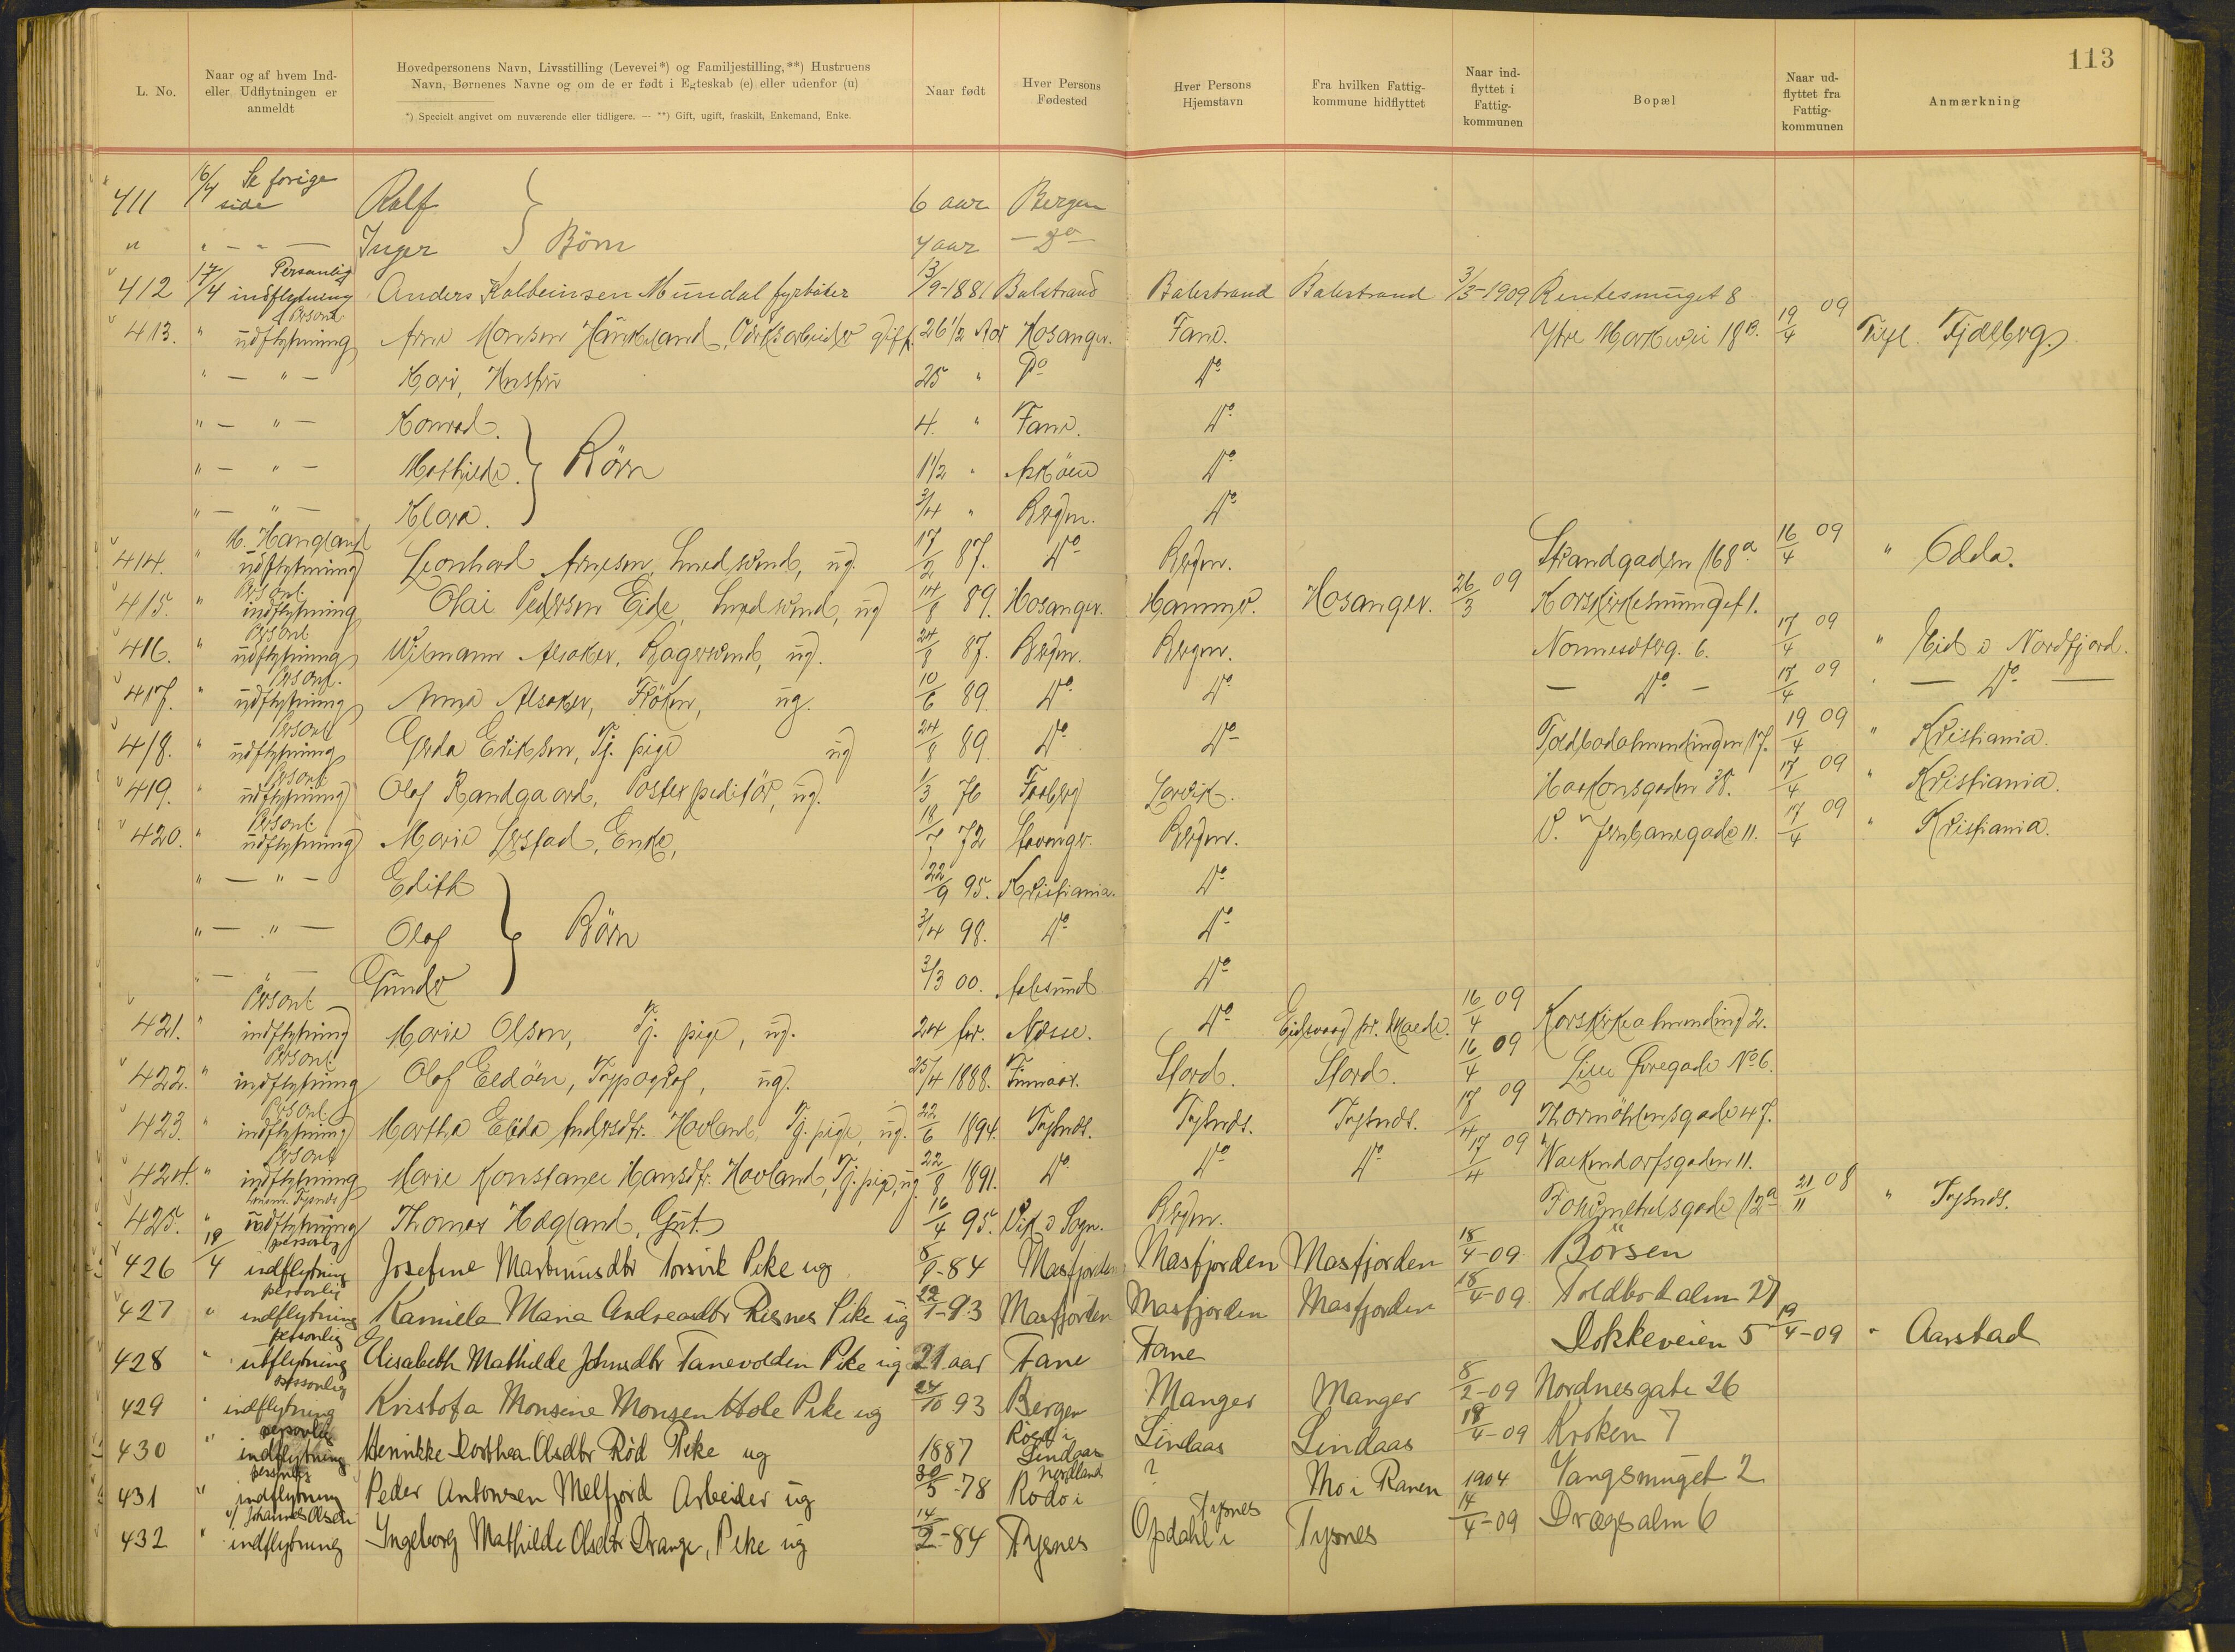 113
L. No.
Naar og af hvem Ind- eller Udflytningen er anmeldt
Hovedpersonens Navn, Livsstilling (Levevei*) og Familjestilling,**) Hustruens Navn, Børnenes Navne og om de er født i Egteskab (e) eller udenfor (u)
*) Specielt angivet om nuværende eller tidligere. — **) Gift, ugift, fraskilt, Enkemand, Enke.
Naar født
Hver Persons Fødested
Hver Persons Hjemstavn
Fra hvilken Fattigkommune hidflyttet
Naar indflyttet i Fattigkommunen
Bopæl
Naar udflyttet fra Fattigkommunen
Anmærkning
411 16/4 Se forige side Rolf 6 aar Bergen
" " — " — Inger } Börn 4 aar — Do —
412 17/4 Personlig indflytning Anders Kolbeinsen Mundal fyrböter 13/9-1881 Balestrand Balestrand Balestrand 3/3-1909 Rentesmuget 8
413. " Personl. udflytning Arne Monsen Haukeland, gift. 26 1/2 Aar Hosanger. Fane. Ytre Markevei 18B. 19/4 09 Tifl. Fjelberg
" — " — Kari, Hustru 25 " Do Do
" — " — Konrad. 4. " Fane. Do
" — " — Mathilde. } Börn 1 1/2 " Asköen Do
" — " — Klara. 3/4 " Bergen. Do
414. " M. Haugland udflytning Leonhard Arnesen, Smedsvend, ug. 17/2 87. Do Bergen. Strandgaden 168a 16/4 09 " Odda.
415. " Personl. indflytning Olai Pedersen Eide, Smedsvend, ug 14/8 89. Hosanger. Hammer. Hosanger. 26/3 09 Korskirkesmuget 1.
416. " Personl. udflytning Wilmann Alsaker, Bagersvend, ug. 24/8 87. Bergen. Bergen. Nonnesæterg. 6. 17/4 09 " Eid i Nordfjord.
417. " Personl. udflytning Anna Alsaker, Fröken, ug. 10/6 89. Do Do — Do — 17/4 09 " — Do —
418. " Personl. udflytning Gerda Eriksen, Tj. pige ug 24/8 89. Do Do Toldbodalmendingen 17. 19/4 09 " Kristiania.
419. " Personl. udflytning Olaf Randgaard, Postexpeditör, ug. 1/3 76 Larvik. Haakonsgaden 38. 17/4 09 " Kristiania.
420. " Personl. udflytning Marie Erstad, Enke, 18/7 72 Stavanger. Bergen. V. Jernbanegade 11. 17/4 09 " Kristiania.
" — " — Edith 22/9 95. Kristiania. Do
" — " — Olaf } Börn 3/4 98. Do Do
" — — Gunder 3/3 00. Aalesund Do
421. " Personl. indflytning Marie Olsen, Tj. pige, ug. 24 Aar. Næsse. Do Eidsvaag pr. Molde. 16/4 09 Korskirkealmending 2.
422. " Personl. indflytning Olaf Eldöen, Typograf, ug. 25/4 1888. Finnaas. Stord. Stord. 16/4 09 Lille Öregade No 6.
423. " Personl. indflytning Martha Elida Andersdtr. Hovland, Tj. pige, ug. 22/6 1894. Tysnes. Tysnes. Tysnes. 17/4 09 Thormöhlensgade 47.
424. " Personl. indflytning Marie Konstance Hansdtr. Hovland, Tj. pige, ug. 22/8 1891. Do Do Do 17/4 09 Walkendorfsgaden 11.
425. " Tysnes udflytning Thomas Hægland, Gut. 16/4 95. Vik i Sogn. Bergen. Fosswinckelsgade 12a 21/11 08 " Tysnes.
426 19/4 personlig indflytning Josefine Martinusdtr Torsvik Pike ug 8/9-84 Masfjorden Masfjorden Masfjorden 18/4-09 Börsen
427 " personlig indflytning Kamilla Maria Andreasdtr Risnes Pike ug 22/1-93 Masfjorden Masfjorden Masfjorden 18/4-09 Toldbodalm 27
428 " personlig utflytning Elisabeth Mathilde Johnsdtr Tanevolden Pike ug 21 aar Fane Fane Dokkeveien 5 19/4-09 " Aarstad
429 " personlig indflytning Kristofa Monsine Monsen Hole Pike ug 24/10 93 Bergen Manger Manger 8/2-09 Nordnesgate 26
430 " personlig indflytning Henrikke Dorthea Olsdtr Röd Pike ug 1887 Röd i Lindaas Lindaas Lindaas 18/4-09 Kroken 7
431 " personlig indflytning Peder Antonsen Melfjord Arbeider ug 30/5-78 Rodö i Nordland ? Mo i Ranen 1904 Vangsmuget 2
432 " v/ Johannes Olsen indflytning Ingeborg Mathilde Olsdtr Drange, Pike ug 14/2-84 Tysnes Opdahl i Tysnes Tysnes 14/4-09 Drægsalm 6